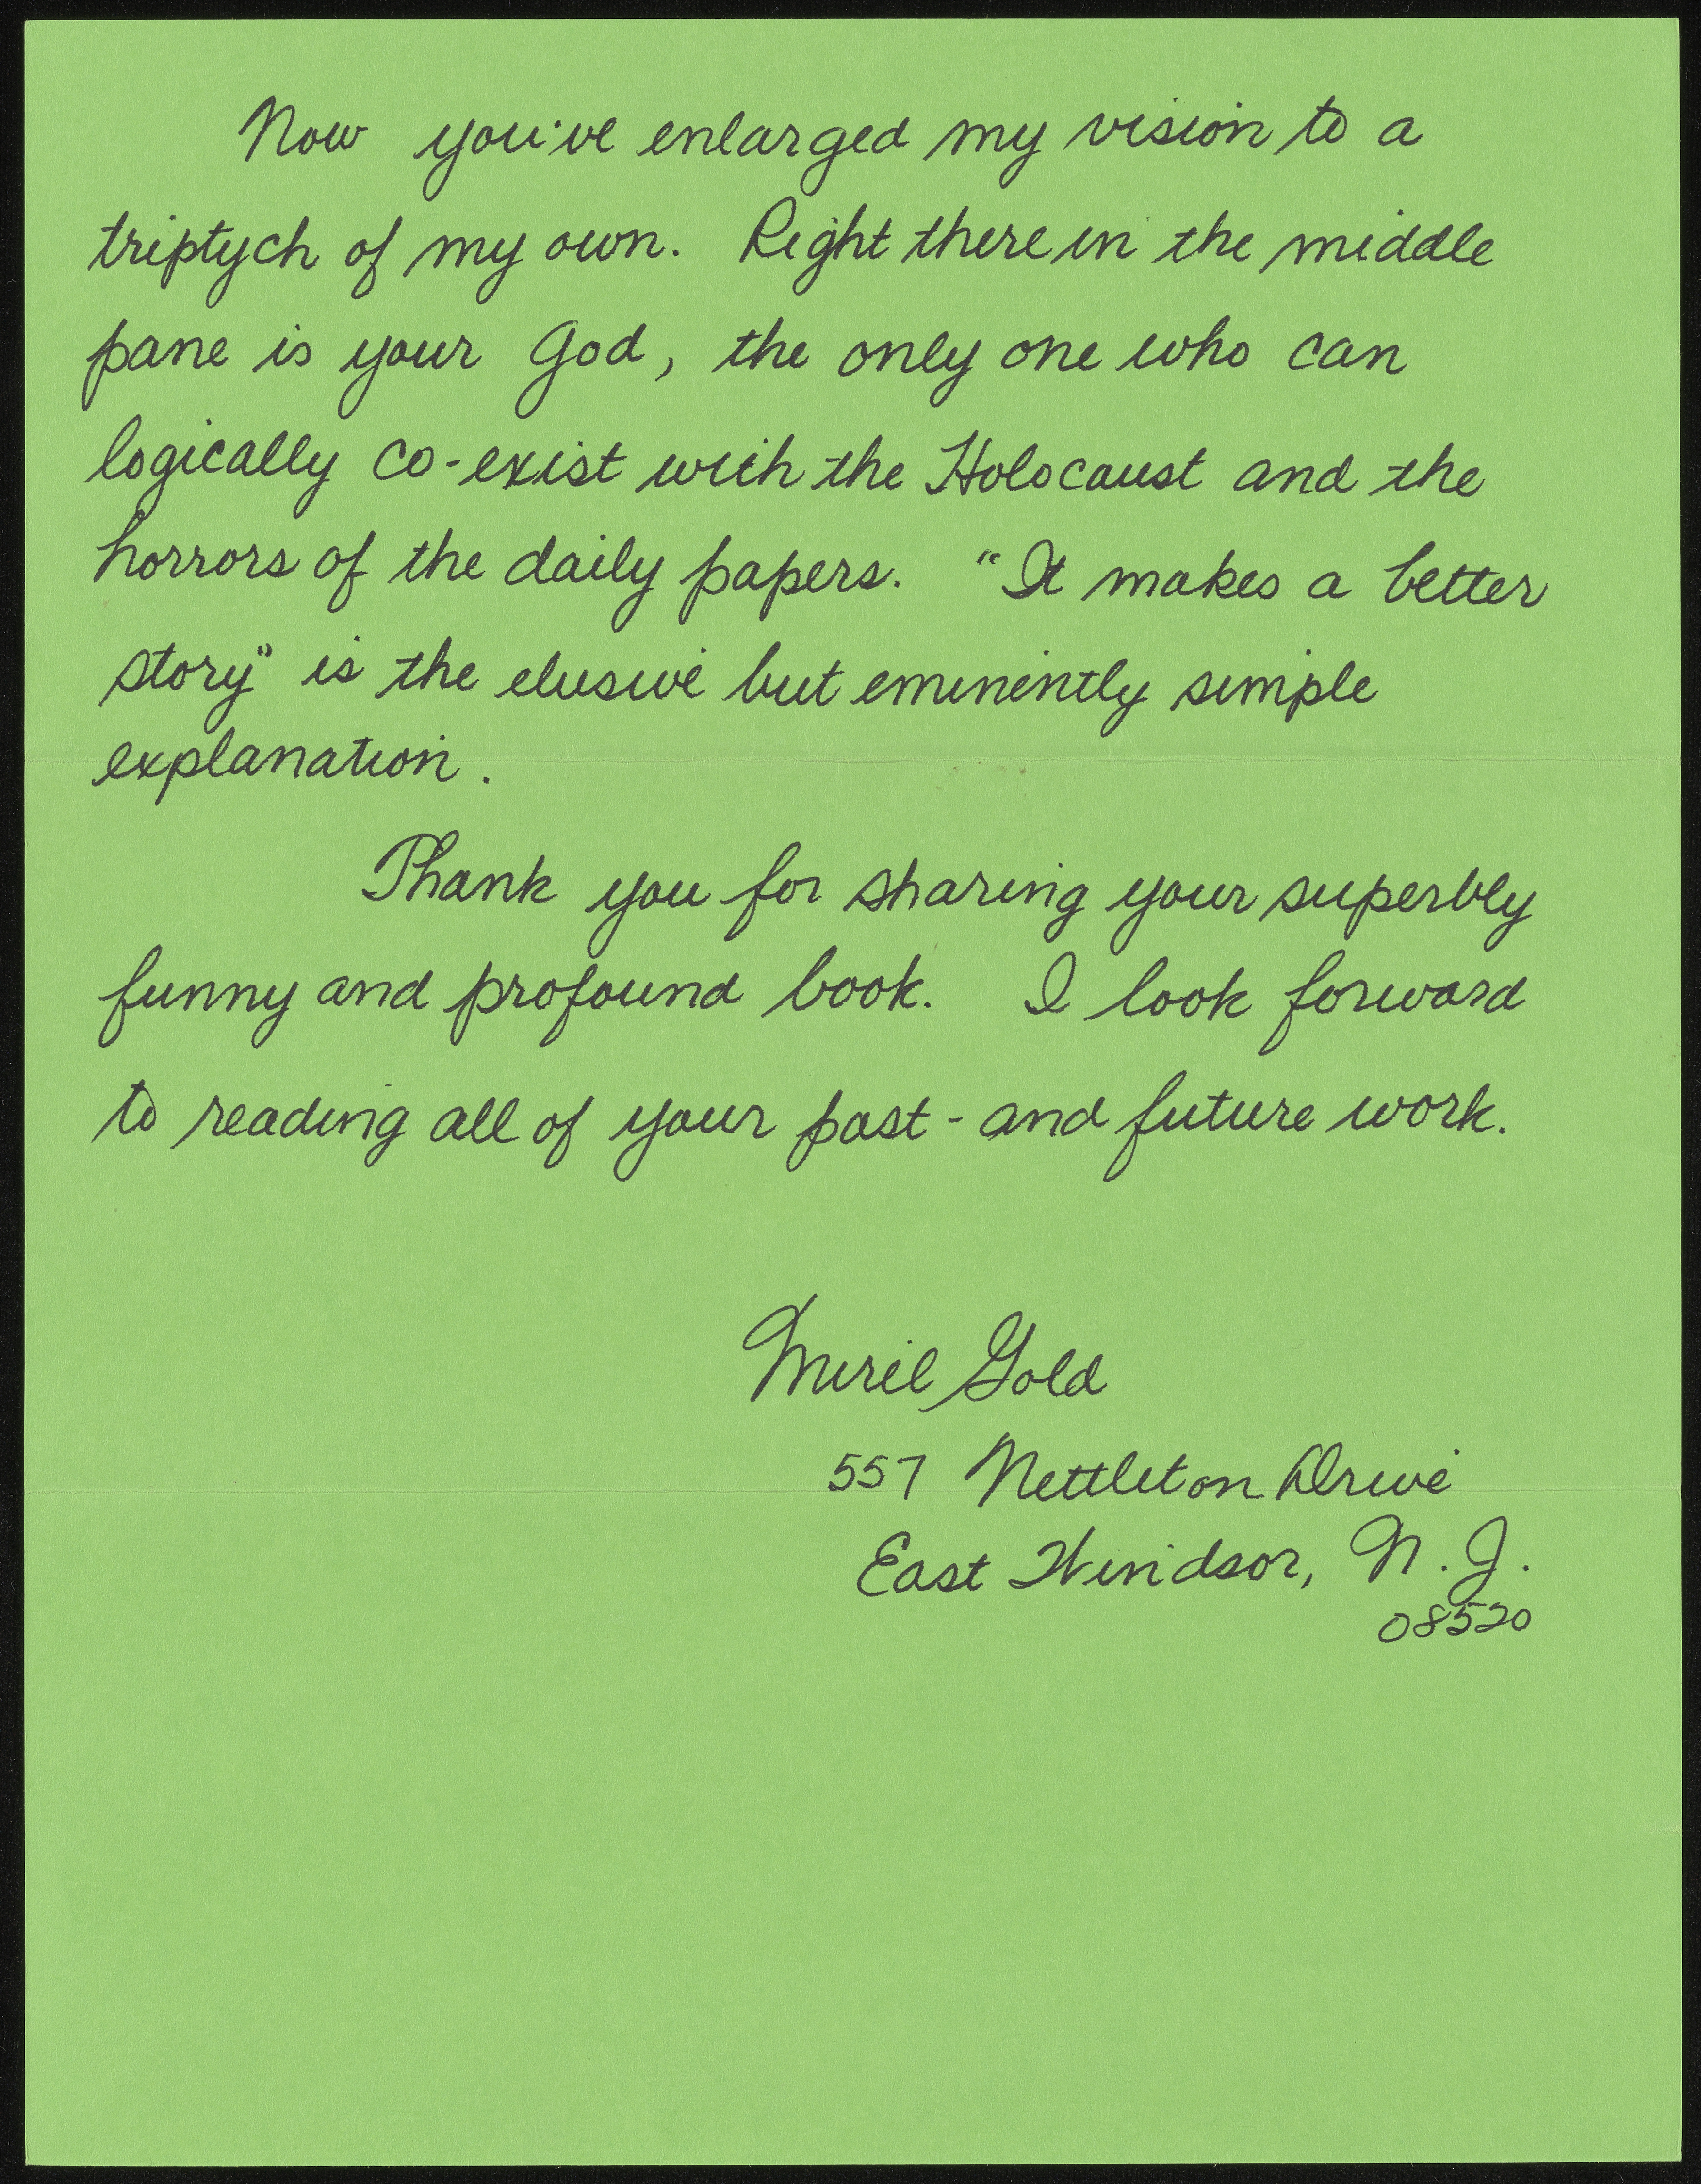 Now you've enlarged my vision to a
triptych of my own. Right there in the middle
pane is your God, the only one who can
logically co-exist with the Holocaust and the
horrors of the daily papers. "It makes a better
story" is the elusive but eminently simple
explanation.
Thank you for sharing your superbly
funny and profound book. I look forward
to reading all of your past - and future work.
Meril Gold
557 Nettleton Drive
East Windsor, N.J.
08520